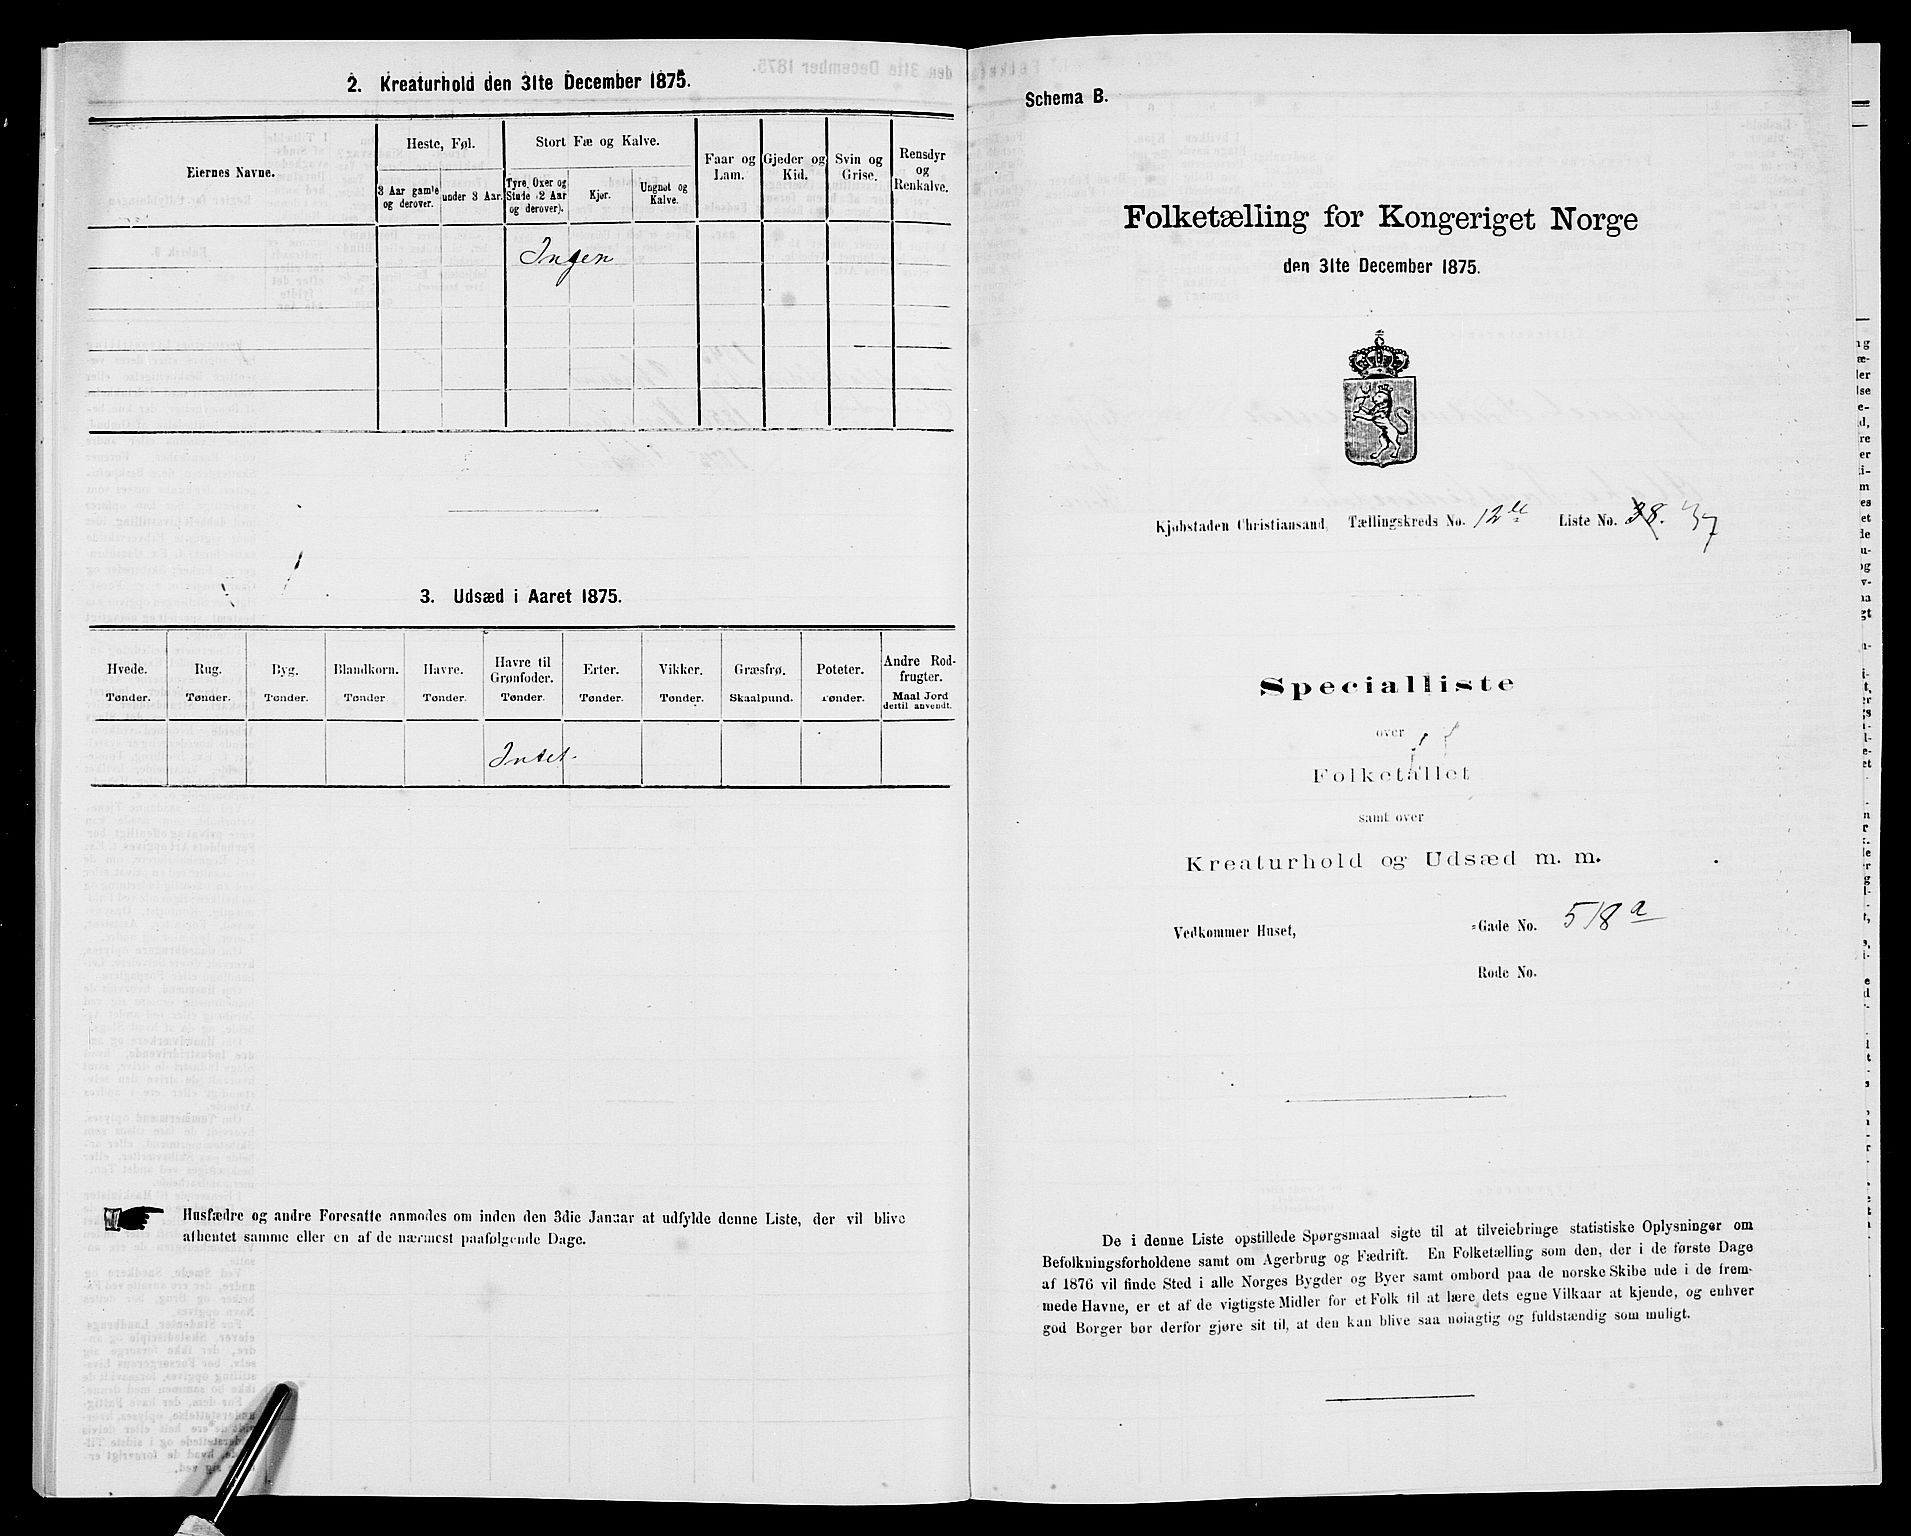 2. Kreaturhold den 31te December 1875.
Eiernes Navne.
Heste, Føl.
3 Aar gamle og derover.
under 3 Aar.
Stort Fæ og Kalve.
Tyre, Oxer og Stude (2 Aar og derover).
Kjør.
Ungnøt og Kalve.
Faar og Lam.
Gjeder og Kid.
Svin og Grise.
Rensdyr og Renkalve.
Ingen
3. Udsæd i Aaret 1875.
Hvede. Tønder.
Rug. Tønder.
Byg. Tønder.
Blandkorn. Tønder
Havre. Tønder.
Havre til Grønfoder. Tønder.
Erter. Tønder.
Vikker. Tønder.
Græsfrø. Skaalpund.
Poteter. Tønder.
Andre Rodfrugter. Maal Jord dertil anvendt.
Intet.
Husfædre og andre Foresatte anmodes om inden den 3die Januar at udfylde denne Liste, der vil blive
afhentet samme eller en af de nærmest paafølgende Dage.
Schema B.
Folketælling for Kongeriget Norge
den 31te December 1875.
Kjøbstaden Christiansand, Tællingskreds No. 12te Liste No. 38. 37
Specialliste
over
Folketallet
samt over
Kreaturhold og Udsæd m. m.
Vedkommer Huset, -Gade No. 518a
Rode No.
De i denne Liste opstillede Spørgsmaal sigte til at tilveiebringe statistiske Oplysninger om
Befolkningsforholdene samt om Agerbrug og Fædrift. En Folketælling som den, der i de første Dage
af 1876 vil finde Sted i alle Norges Bygder og Byer samt ombord paa de norske Skibe ude i de frem-
mede Havne, er et af de vigtigste Midler for et Folk til at lære dets egne Vilkaar at kjende, og enhver
god Borger bør derfor gjøre sit til, at den kan blive saa nøiagtig og fuldstændig som muligt.